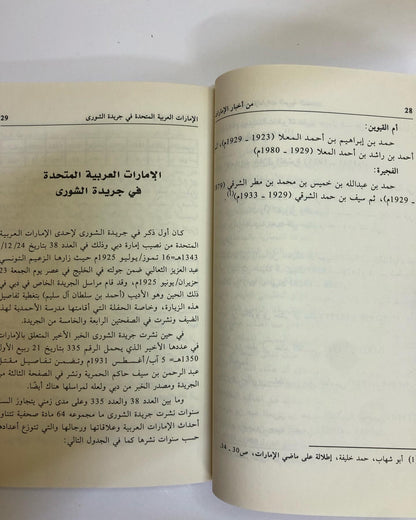 28
من أخبار الإمارات
أم القيوين:
حمد بن إبراهيم بن أحمد المعلا (1923 ـ 1929م)،
أحمد بن راشد بن أحمد المعلا (1929 ـ 1980م)
الفجيرة:
حمد بن عبدالله بن خميس بن محمد بن مطر الشرقي
1929م)، ثم سيف بن حمد الشرقي (1929 ـ 1933م)(1)
1) أبو شهاب، حمد خليفة، إطلالة على ماضي الإمارات، ص30 ـ 34.
الإمارات العربية المتحدة في جريدة الشورى
29
الإمارات العربية المتحدة
في جريدة الشورى
كان أول ذكر في جريدة الشورى لإحدى الإمارات العربية
المتحدة من نصيب إمارة دبي وذلك في العدد 38 بتاريخ 12/24/
1343هـ=16 تموز/يوليو 1925م حيث زارها الزعيم التونسي
عبد العزيز الثعالبي ضمن جولة في الخليج في عصر يوم الجمعة 23
حزيران/يونيو 1925م، وقد قام مراسل الجريدة الخاص في دبي في
ذلك الحين وهو الأديب (أحمد بن سلطان آل سليم) بتغطية تفاصيل
هذه الزيارة، وخاصة الحفلة التي أقامتها مدرسة الأحمدية لهذا
الضيف ونشرت في الصفحتين الرابعة والخامسة من الجريدة.
في حين نشرت جريدة الشورى الخبر الأخير المتعلق بالإمارات
في عددها الأخير الذي يحمل الرقم 335 بتاريخ 21 ربيع الأول
1350هـ= 5 آب/أغسطس 1931م وتضمن تفاصيل مقتل
عبد الرحمن بن سيف حاكم الحمرية ونشر في الصفحة الثالثة من
الجريدة ومصدر الخبر من دبي ولعله لمراسلها هناك أيضًا.
وما بين العدد 38 والعدد 335 وعلى مدى زمني يتجاوز الست
سنوات نشرت جريدة الشورى ما مجموعه 64 مادة صحفية تتناول
أحداث الإمارات العربية وعلاقاتها ورجالها والتي تتوزع أعدادها
حسب سنوات نشرها كما في الجدول التالي: